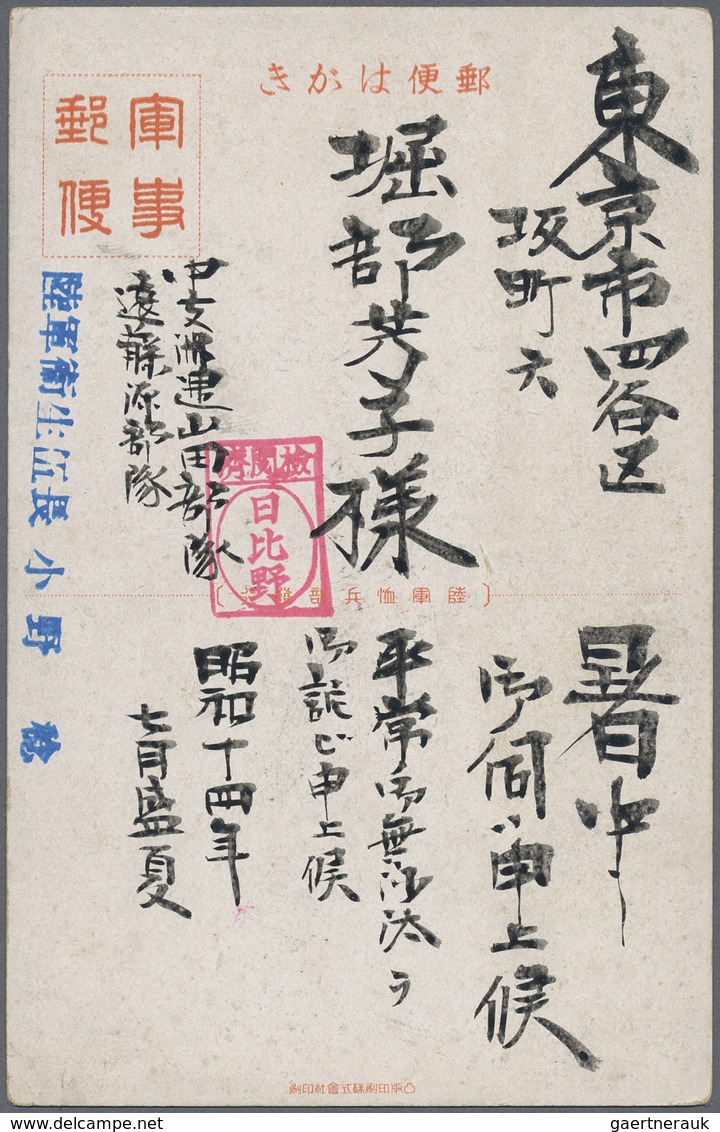 郵便はがき
軍事
郵便
東京市四谷区
坂町六
堀部芳子様
中支派遣山田部隊
遠藤源部隊
検閲済
日比野
陸軍衛生伍長 小野
〔陸軍恤兵部
暑中
御伺ヒ申上候
平常御無沙汰ヲ
御詫ビ申上候
昭和十四年
七月盛夏
凸版印刷株式會社印刷
gaertnerauk